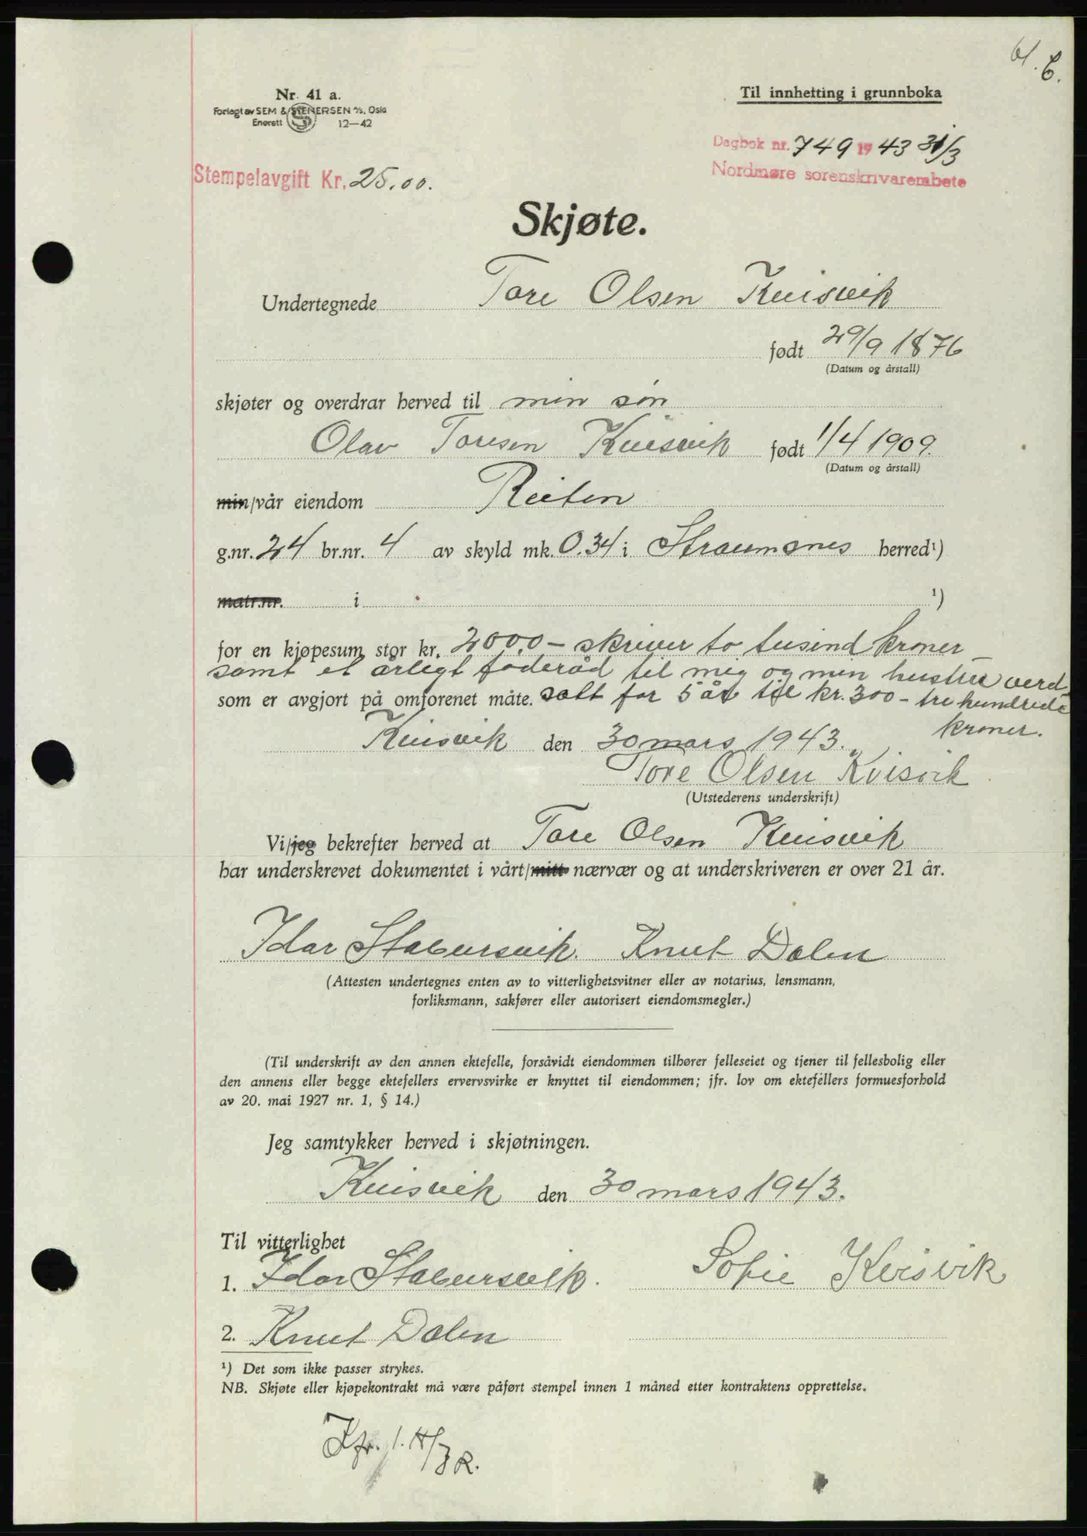 61. C.
Nr. 41 a.
Forlagt av SEM & STENERSEN A/S, Oslo
Enerett 12—42
Til innhetting i grunnboka
Dagbok nr. 749 1943 31/3
Nordmøre sorenskriverembete
Stempelavgift Kr. 25.00.
Skjøte.
Undertegnede Tore Olsen Kvisvik
født 29/9 1876
(Datum og årstall)
skjøter og overdrar herved til min søn
Olav Toresen Kvisvik født 1/4 1909.
(Datum og årstall)
min/vår eiendom Reiten
g.nr. 24 br.nr. 4 av skyld mk. 0.34 i Straumsnes herred¹)
matr.nr. i ¹)
for en kjøpesum stor kr. 2000,- skriver to tusind kroner
samt et årlegt føderåd til mig og min hustru verd-
som er avgjort på omforenet måte. satt for 5 år til kr. 300 - tre hundrede
kroner.
Kvisvik den 30 mars 1943.
Tore Olsen Kvisvik
(Utstederens underskrift)
Vi/jeg bekrefter herved at Tore Olsen Kvisvik
har underskrevet dokumentet i vårt/mitt nærvær og at underskriveren er over 21 år.
Idar Stabursvik. Knut Dalen
(Attesten undertegnes enten av to vitterlighetsvitner eller av notarius, lensmann,
forliksmann, sakfører eller autorisert eiendomsmegler.)
(Til underskrift av den annen ektefelle, forsåvidt eiendommen tilhører felleseiet og tjener til fellesbolig eller
den annens eller begge ektefellers ervervsvirke er knyttet til eiendommen; jfr. lov om ektefellers formuesforhold
av 20. mai 1927 nr. 1, § 14.)
Jeg samtykker herved i skjøtningen.
Kvisvik den 30 mars 1943.
Til vitterlighet
1. Idar Stabursvik. Sofie Kvisvik
2. Knut Dalen
¹) Det som ikke passer strykes.
NB. Skjøte eller kjøpekontrakt må være påført stempel innen 1 måned etter kontraktens opprettelse.